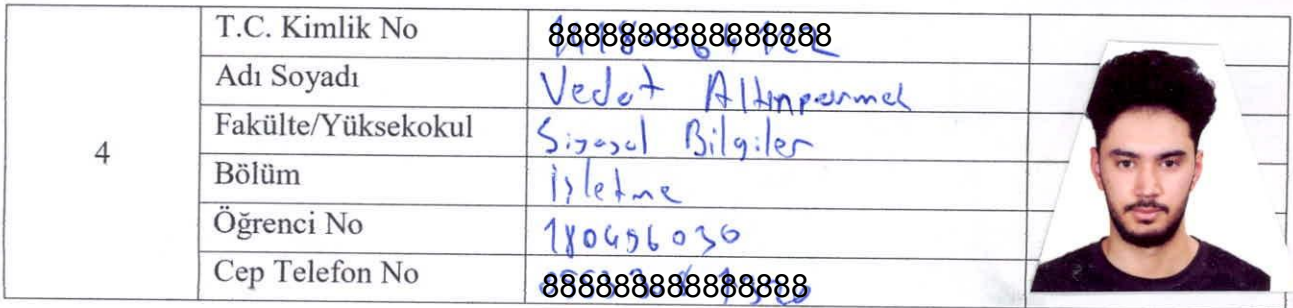 4
T.C. Kimlik No 8888888888888888
Adı Soyadı Vedat Altınparmak
Fakülte/Yüksekokul Siyasal Bilgiler
Bölüm İşletme
Öğrenci No 180496036
Cep Telefon No